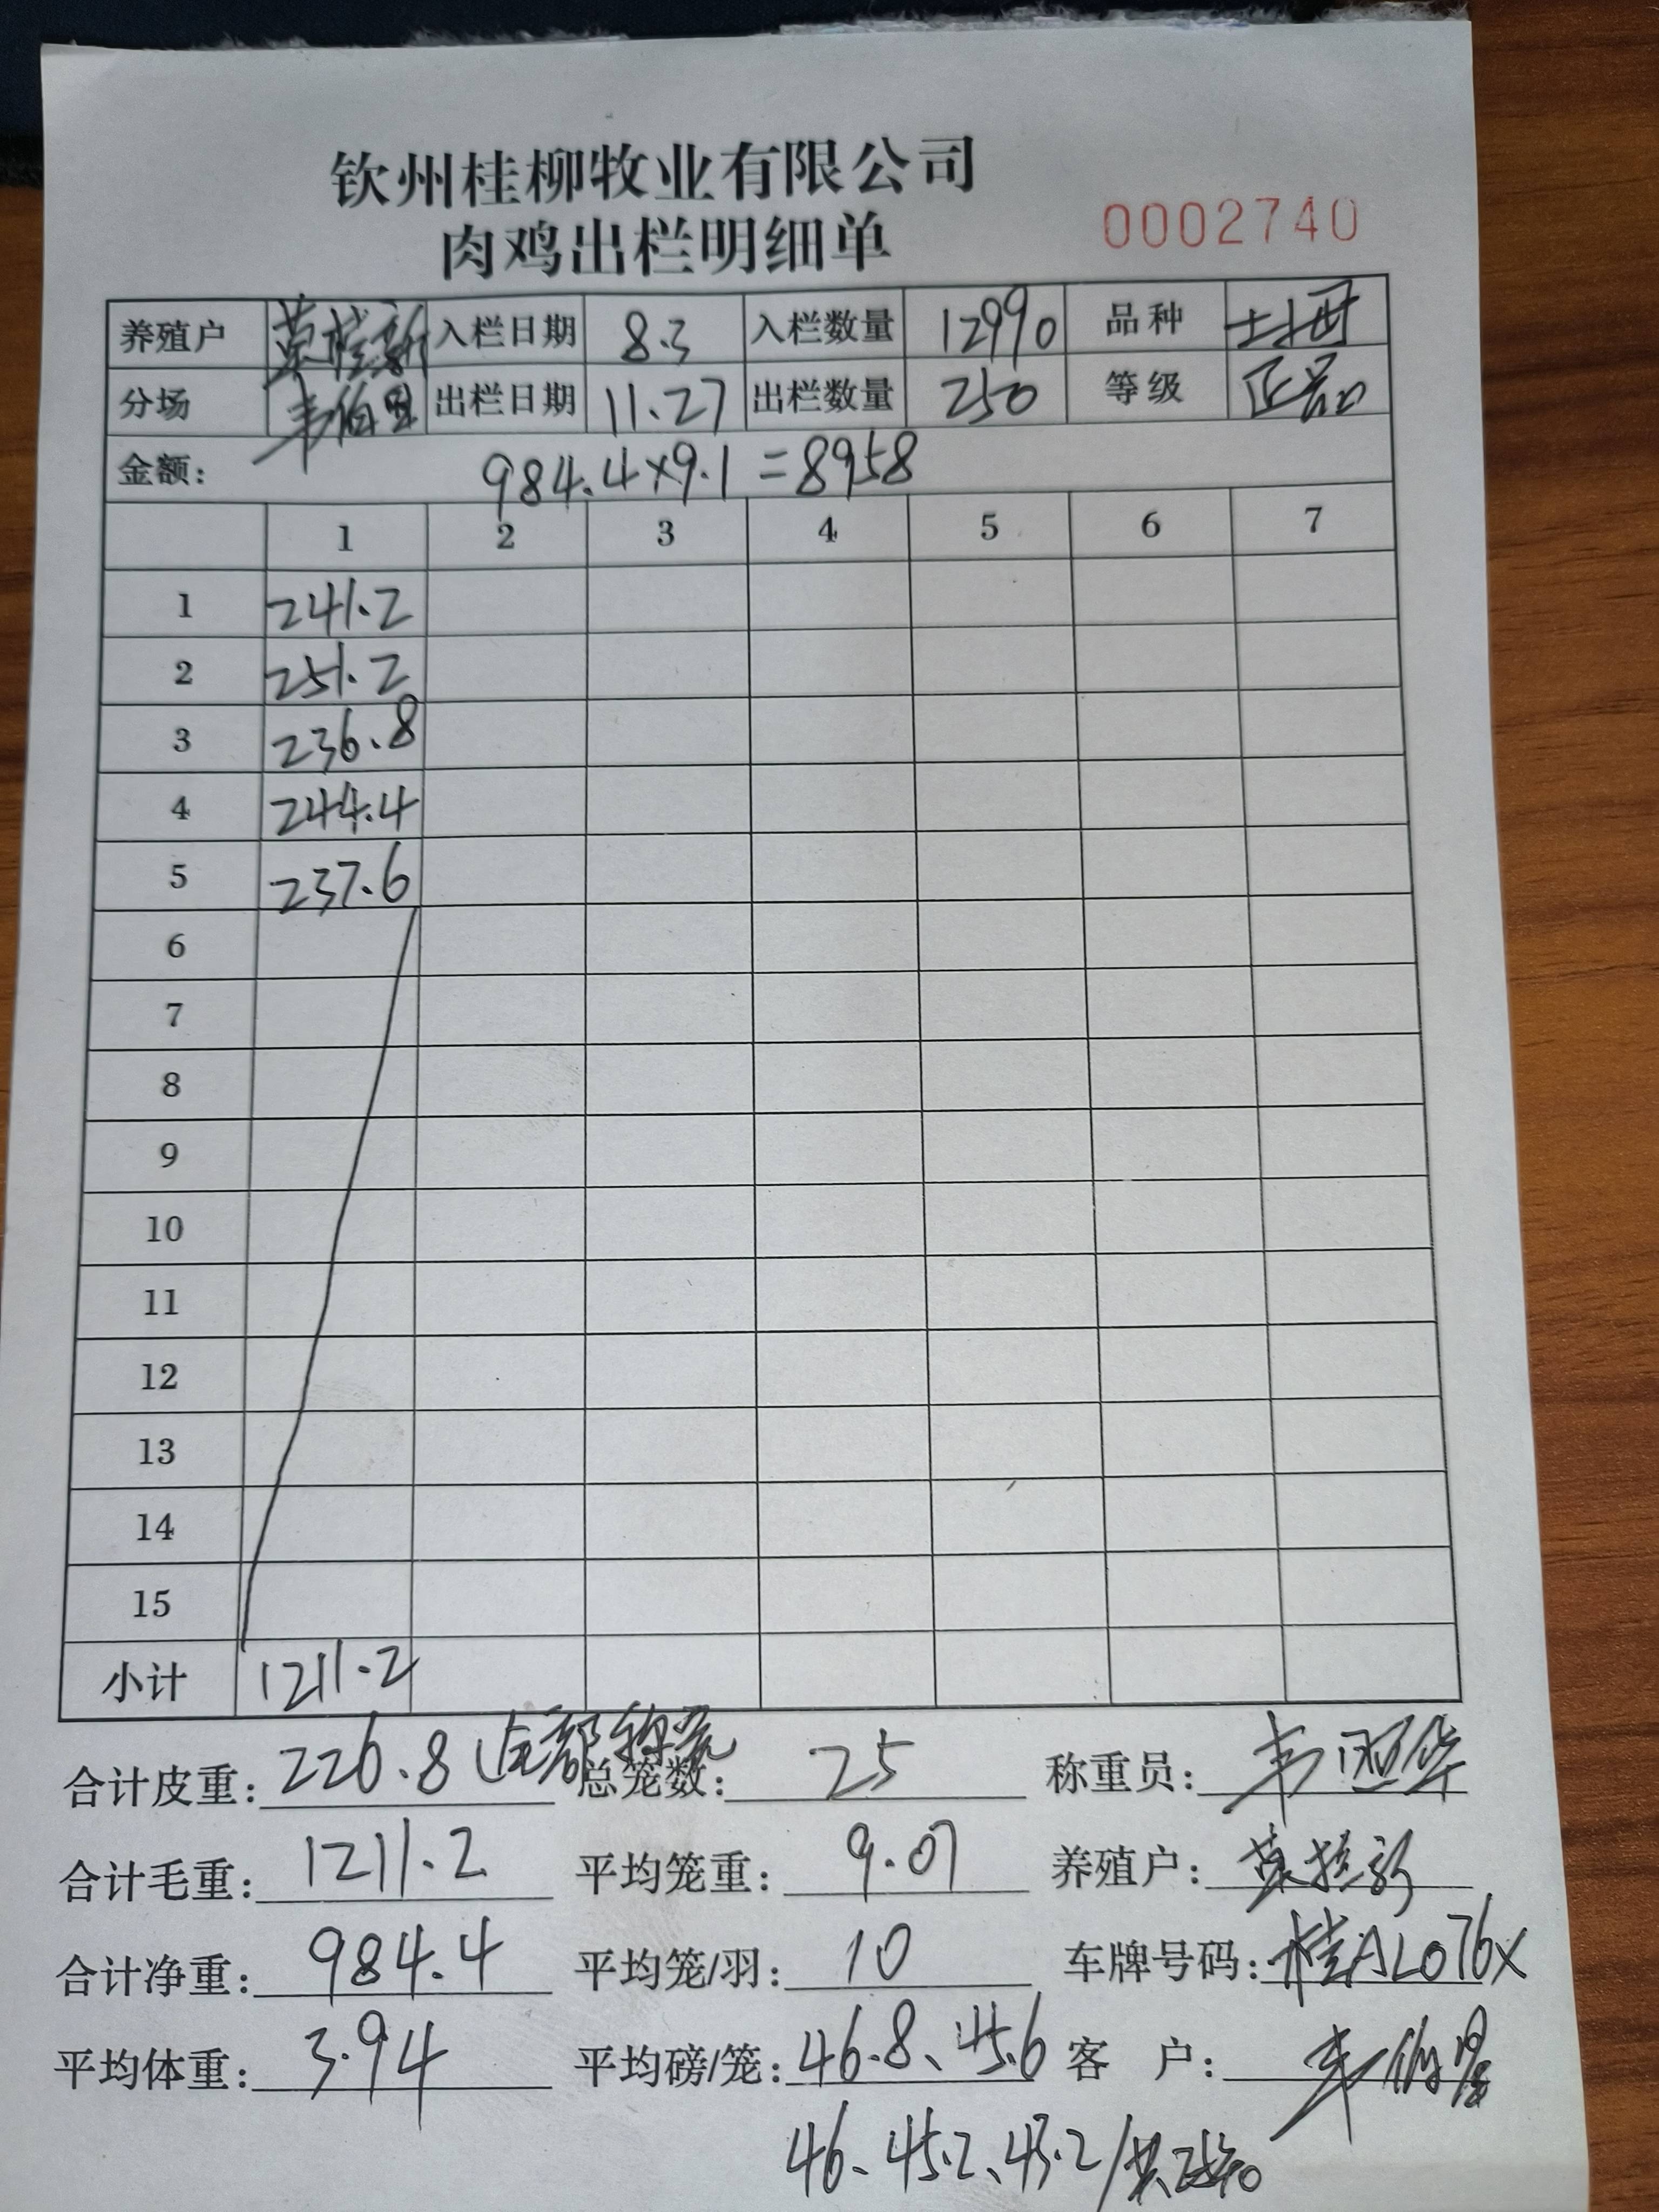 钦州桂柳牧业有限公司
肉鸡出栏明细单 0002740
养殖户 入栏日期 8.3 入栏数量 12990 品种 土
分场 韦 出栏日期 11.27 出栏数量 250 等级 正品
金额: 984.4×9.1=8958
1 2 3 4 5 6 7
1 241.2
2 251.2
3 236.8
4 244.4
5 237.6
6
7
8
9
10
11
12
13
14
15
小计 1211.2
合计皮重: 226.8 (全部称完 总笼数: 25 称重员: 韦
合计毛重: 1211.2 平均笼重: 9.07 养殖户:
合计净重: 984.4 平均笼/羽: 10 车牌号码: 桂AL076X
平均体重: 3.94 平均磅/笼: 46.8、45.6 客 户: 韦
46、45.2、43.2/共